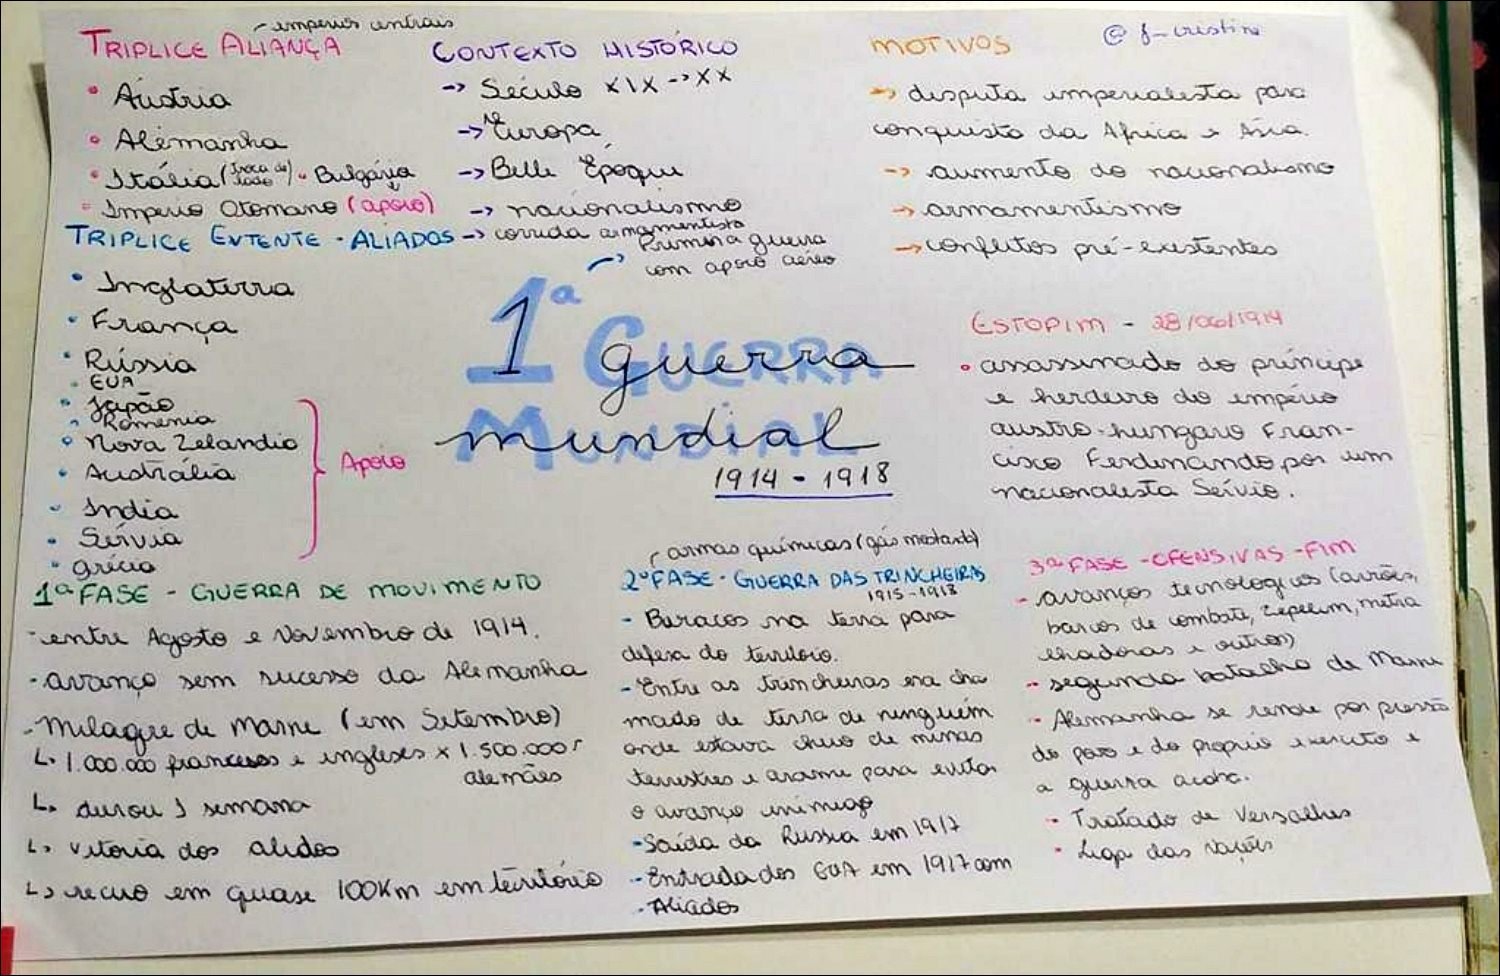 impérios centrais
TRIPLICE ALIANÇA
• Áustria
• Alemanha
• Itália (troca de lado) • Bulgária
• Império Otomano (apoio)
TRIPLICE ENTENTE - ALIADOS
• Inglaterra
• França
• Rússia
• EUA
• Japão
• Romenia
• Nova Zelandia
• Austrália
• India
• Sérvia
• grécia
Apoio
CONTEXTO HISTÓRICO
-> Século XIX -> XX
-> Europa
-> Belle Époque
-> nacionalismo
-> corrida armamentista
MOTIVOS
@f_cristine
-> disputa imperialista para
conquista da Africa e Ásia.
-> aumento do nacionalismo
-> armamentismo
-> conflitos pré-existentes
Primeira guerra
com apoio aéreo
1ª GUERRA
MUNDIAL
1ª guerra
mundial
1914 - 1918
ESTOPIM - 28/06/1914
• assassinado do príncipe
e herdeiro do império
austro-hungaro Fran-
cisco Ferdinando por um
nacionalista Sérvio.
1ª FASE - GUERRA DE MOVIMENTO
- entre Agosto e Novembro de 1914.
- avanço sem sucesso da Alemanha
- Milagre de Marne (em Setembro)
↳ 1.000.000 franceses e ingleses x 1.500.000
alemães
↳ durou 1 semana
↳ vitoria dos aliados
↳ recuo em quase 100Km em território
armas químicas (gás mostarda)
2ª FASE - GUERRA DAS TRINCHEIRAS
1915-1918
- Buracos na terra para
defesa do território.
- Entre as trincheiras era cha
mado de terra de ninguém
onde estava cheio de minas
terrestres e arame para evitar
o avanço inimigo
- Saída da Russia em 1917
- Entrada dos EUA em 1917 com
- Aliados
3ª FASE - OFENSIVAS - FIM
- avanços tecnologicos (aviões,
barcos de combate, zepelim, metra
lhadoras e outros)
- segunda batalha de Marne
- Alemanha se rende por pressão
do povo e do proprio exercito e
a guerra acaba.
- Tratado de Versalhes
• Liga das Nações